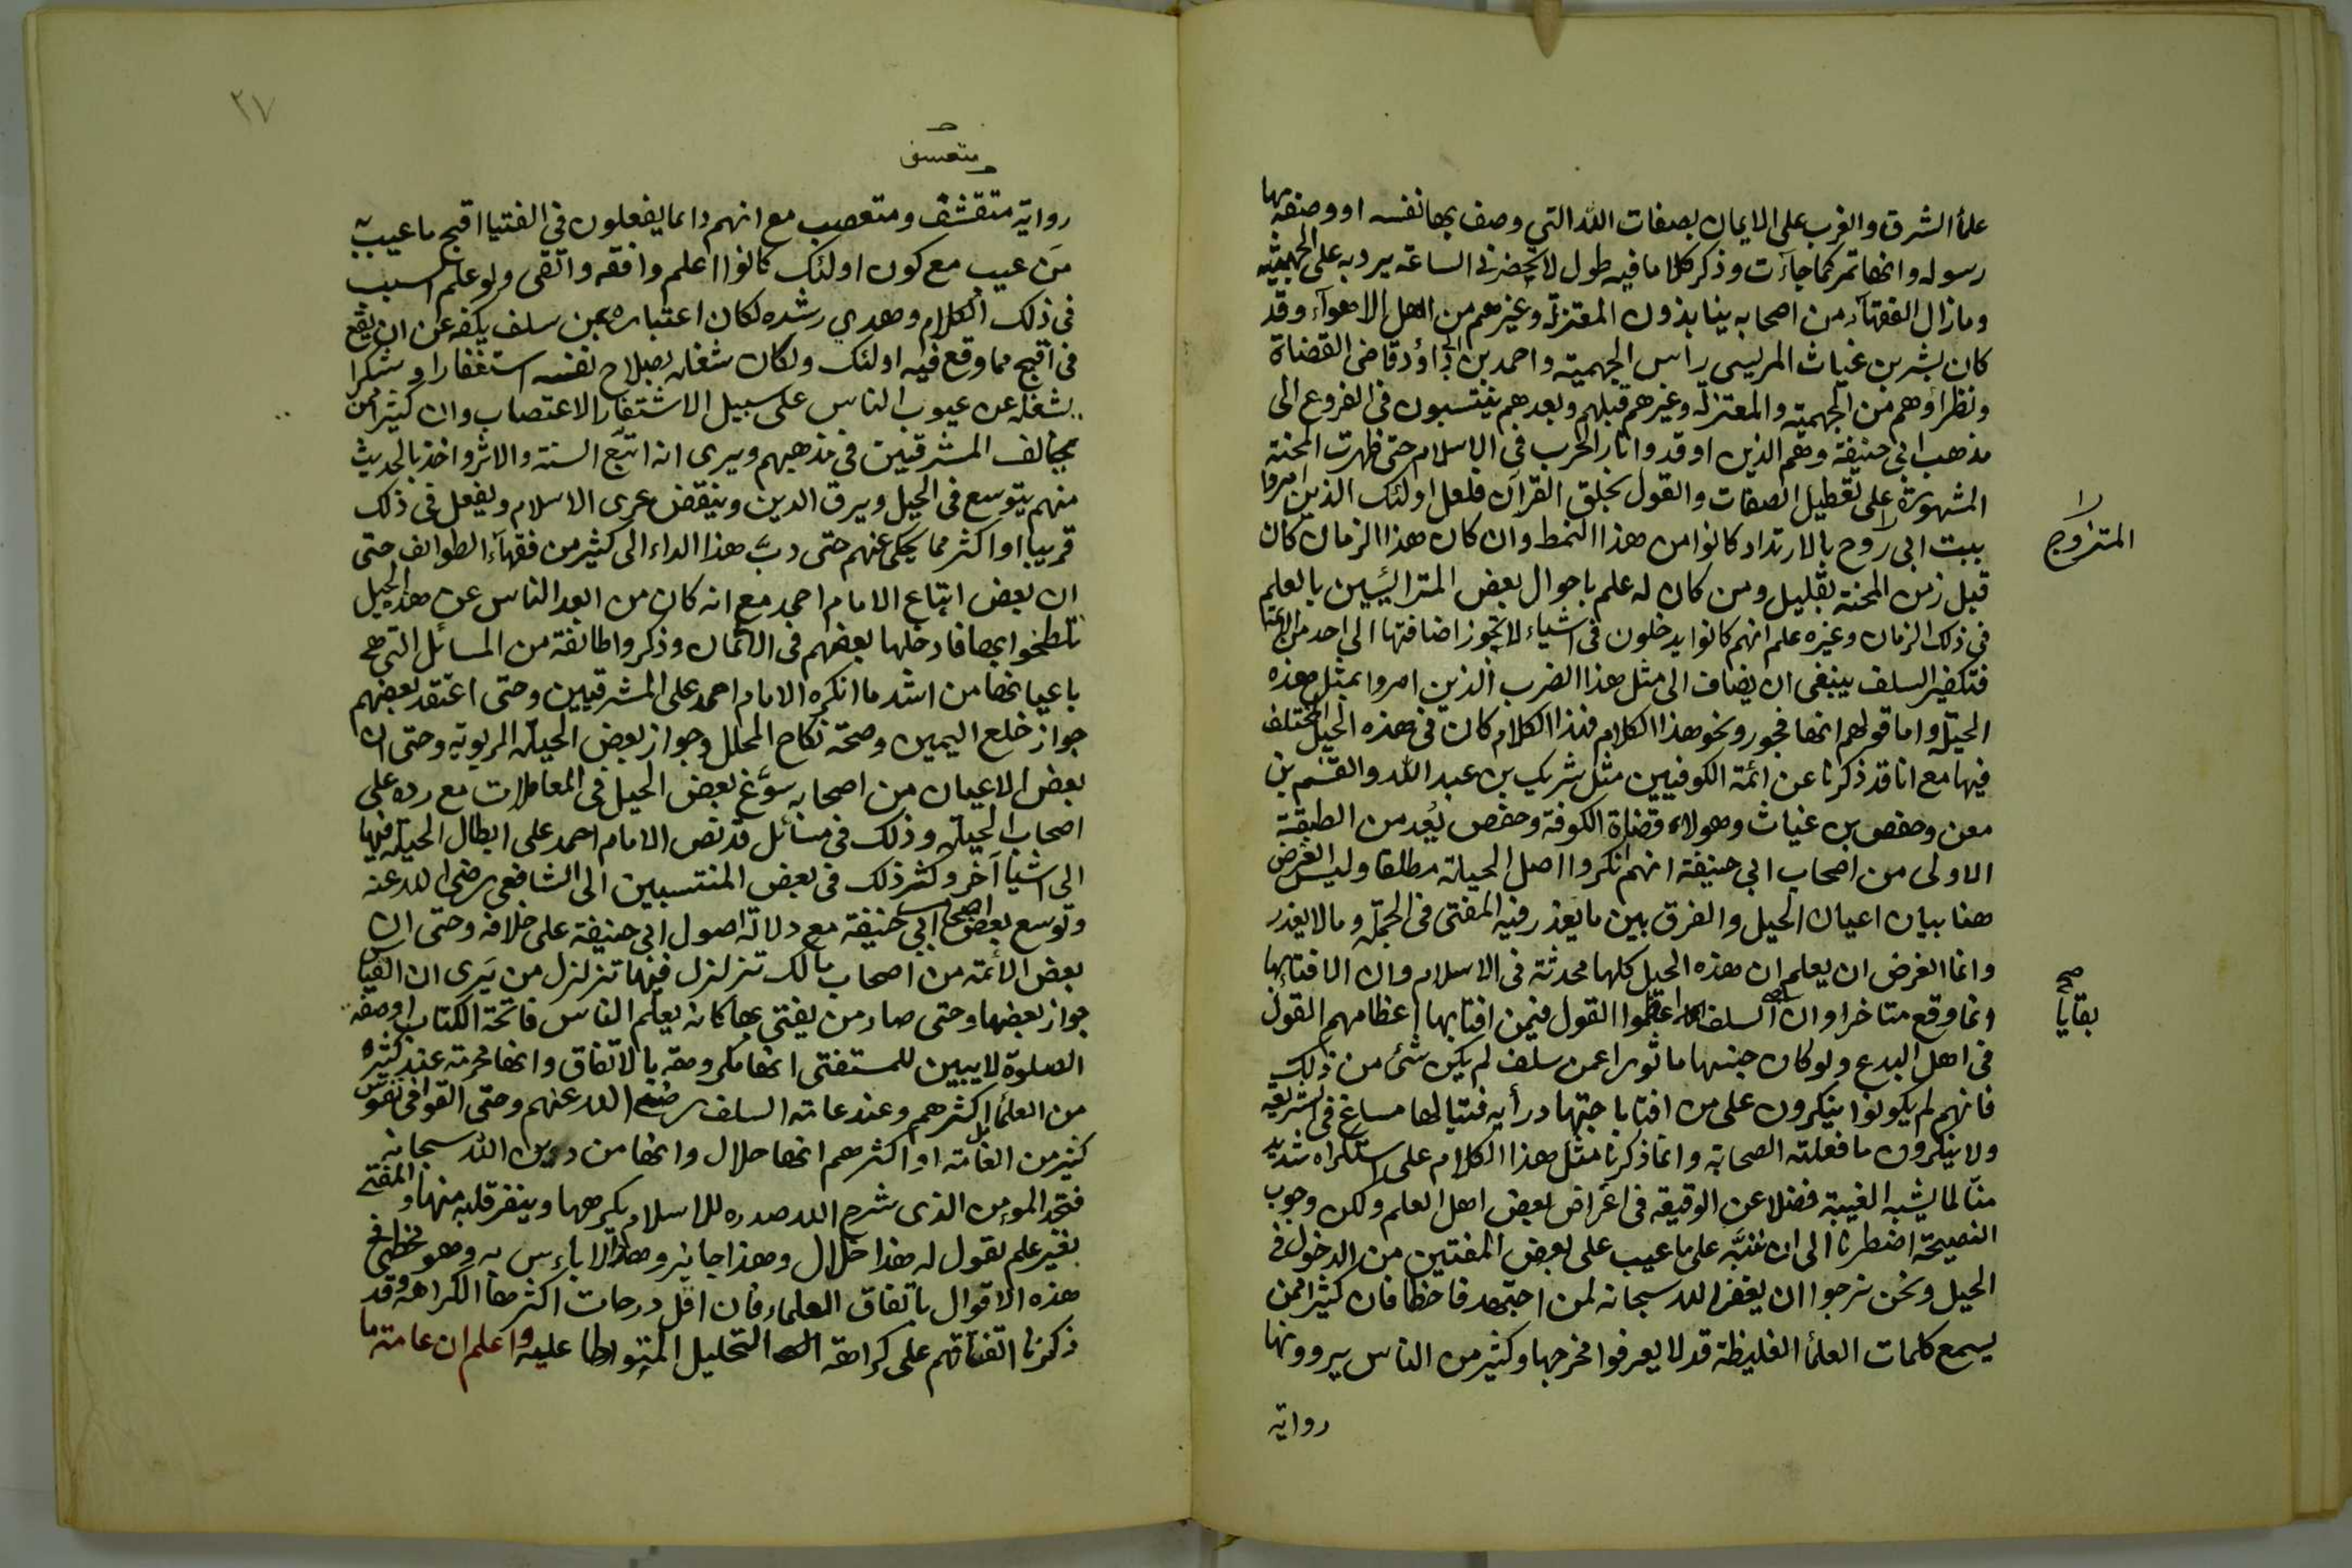 علماء الشرق والغرب على الايمان بصفات الله التي وصف بها نفسه او وصفه بها
رسوله وانها تمر كما جاءت وذكر كلاما فيه طول لا يحضرني الساعة يرد به على الجهمية
وما زال الفقهاء من اصحابه ينابذون المعتزلة وغيرهم من اهل الاهوآء وقد
كان بشر بن غياث المريسي راس الجهمية واحمد بن ابي داؤد قاضي القضاة
ونظراؤهم من الجهمية والمعتزلة وغيرهم قبلهم وبعدهم ينتسبون في الفروع الى
مذهب ابي حنيفة وهم الذين اوقدوا نار الحرب في الاسلام حتى ظهرت المحنة
المشهورة على تعطيل الصفات والقول بخلق القرآن فلعل اولئك الذين امروا
ببنت ابي روح بالارتداد كانوا من هذا النمط وان كان هذا الزمان كان
المتزوج
قبل زمن المحنة بقليل ومن كان له علم باحوال بعض المترائسين بالعلم
في ذلك الزمان وغيره علم انهم كانوا يدخلون في اشياء لا يجوز اضافتها الى احد من الائمة
فتكفير السلف ينبغي ان يضاف الى مثل هذا الضرب الذين امروا بمثل هذه
الحيل واما قولهم انها فجور ونحو هذا الكلام فهذا الكلام كان في هذه الحيل المختلف
فيها مع انا قد ذكرنا عن ائمة الكوفيين مثل شريك بن عبد الله والقسم بن
معن وحفص بن غياث وهولاء قضاة الكوفة وحفص يُعد من الطبقة
الاولى من اصحاب ابي حنيفة انهم انكروا اصل الحيلة مطلقا وليس الغرض
هنا بيان اعيان الحيل والفرق بين ما يعذر فيه المفتي في الجملة وما لا يعذر
وانما الغرض ان يعلم ان هذه الحيل كلها محدثة في الاسلام وان الافتاء بها
انما وقع متاخرا وان السلف اعظموا القول فيمن افتا بها اعظامهم القول
بقايا صح
في اهل البدع ولو كان جنسها ماثورا عمن سلف لم يكن شئ من ذلك
فانهم لم يكونوا ينكرون على من افتا باجتهاد رأيه فتيا لها مساغ في الشريعة
ولا ينكرون ما فعلته الصحابة وانما ذكرنا مثل هذا الكلام على استكراه شديد
منا لما يشبه الغيبة فضلا عن الوقيعة في اعراض بعض اهل العلم ولكن وجوب
النصيحة اضطرنا الى ان ننبّه على ما عيب على بعض المفتين من الدخول في
الحيل ونحن نرجوا ان يغفر الله سبحانه لمن اجتهد فاخطا فان كثيرا ممن
يسمع كلمات العلمأ الغليظة قد لا يعرفوا مخرجها وكثير من الناس يروونها
رواية
٢٧
ومتعسف
رواية متقشف ومتعصب مع انهم دائما يفعلون في الفتيا اقبح ما عيب به
مَن عيب مع كون اولئك كانوا اعلم وافقه واتقى ولو علم السبب
في ذلك الكلام وهدي رشده لكان اعتباره بمن سلف يكفه عن ان يقع
في اقبح مما وقع فيه اولئك ولكان شغله بصلاح نفسه استغفارا وشكرا
يشغله عن عيوب الناس على سبيل الاشتفار الاعتصاب وان كثيرا ممن
يخالف المشرقيين في مذهبهم ويرى انه اتبع السنة والاثر واخذ بالحديث
منهم يتوسع في الحيل ويرق الدين وينقض عرى الاسلام ويفعل في ذلك
قريبا او اكثر مما يحكى عنهم حتى دبّ هذا الداء الى كثير من فقهآء الطوايف حتى
ان بعض اتباع الامام احمد مع انه كان من ابعد الناس عن هذه الحيل
تلطخوا بها فادخلها بعضهم في الايمان وذكروا طائفة من المسائل التي هي
باعيانها من اشد ما انكره الامام احمد على المشرقيين وحتى اعتقد بعضهم
جواز خلع اليمين وصحة نكاح المحلل وجواز بعض الحيلة الربوية وحتى ان
بعض الاعيان من اصحابه سوّغ بعض الحيل في المعاملات مع رده على
اصحاب الحيلة وذلك في مسائل قد نص الامام احمد على ابطال الحيلة فيها
الى اشيا اخر وكثر ذلك في بعض المنتسبين الى الشافعي رضي الله عنه
وتوسع بعض اصحاب ابي حنيفة مع دلالة اصول ابي حنيفة على خلافه وحتى ان
بعض الائمة من اصحاب مالك تزلزل فيها تزلزل من يَرى ان القياس
جواز بعضها وحتى صار من يفتي بها كانه يعلم الناس فاتحة الكتاب او صفة
الصلوة لا يبين للمستفتي انها مكروهة بالاتفاق وانها محرمة عند كثير
من العلماء بل اكثرهم وعند عامة السلف رضي الله عنهم وحتى القوا في نفوس
كثير من العامة او اكثرهم انها حلال وانها من دين الله سبحانه
فتجد المؤمن الذي شرح الله صدره للاسلام يكرهها وينفر قلبه منها والمفتي
بغير علم يقول له هذا حلال وهذا جايز وهذا لا باءس به وهو مخطئ في
هذه الاقوال باتفاق العلماء فان اقل درجات اكثرها الكراهة وقد
ذكرنا اتفاقهم على كراهة التحليل المتواطا عليه واعلم ان عامة ما